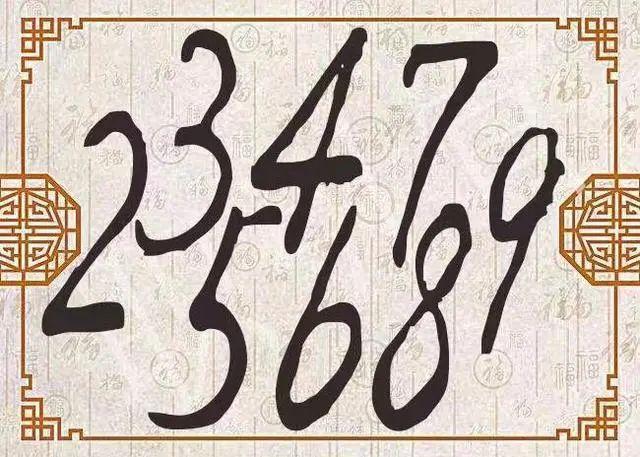 3 4 7
2 9
5 6 8